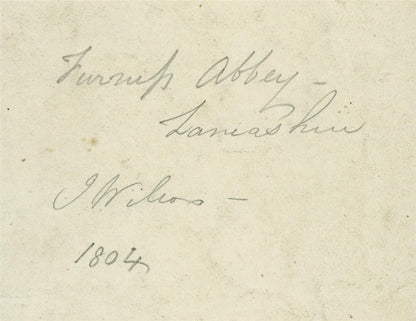 Furneſs Abbey –
Lancashire
J Wilson –
1804